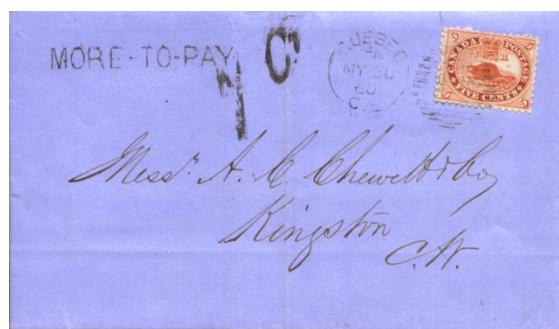 MORE-TO-PAY
QUEBEC
MY 30
60
CANADA POSTAGE
5
5
5
5
FIVE CENTS
Messrs. A. C. Chewett & Co
Kingston
C.W.